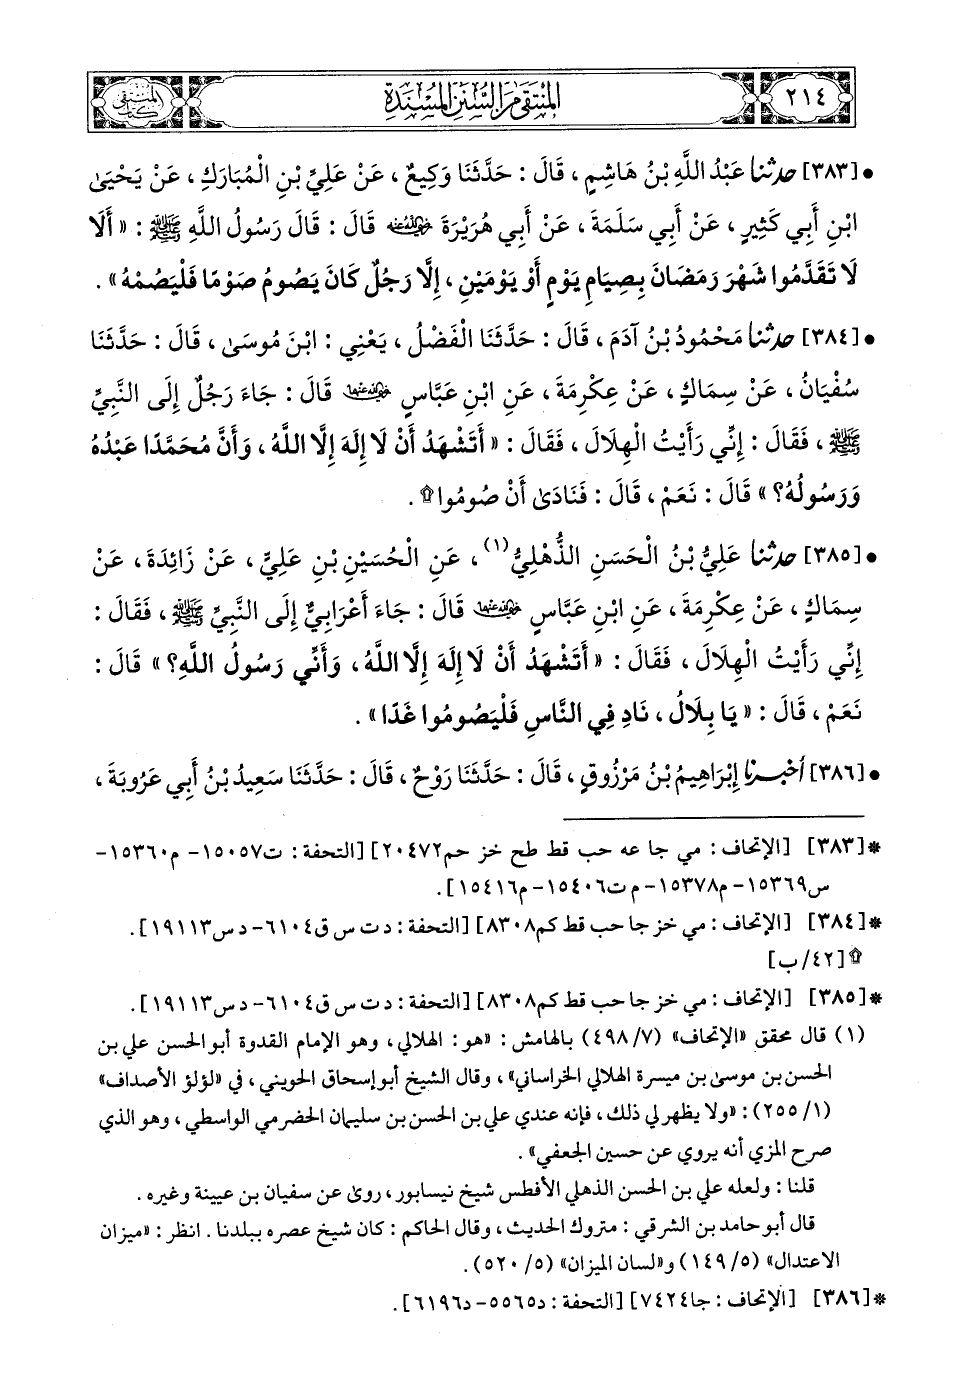 ٢١٤
المنتقى من السنن المسندة
كتاب المنتقى
• [٣٨٣] حدثنا عَبْدُ اللَّهِ بْنُ هَاشِمٍ ، قَالَ : حَدَّثَنَا وَكِيعٌ ، عَنْ عَلِيِّ بْنِ الْمُبَارَكِ ، عَنْ يَحْيَىٰ
ابْنِ أَبِي كَثِيرٍ ، عَنْ أَبِي سَلَمَةَ ، عَنْ أَبِي هُرَيْرَةَ رضي الله عنه قَالَ : قَالَ رَسُولُ اللَّهِ ﷺ : « أَلَا
لَا تَقَدَّمُوا شَهْرَ رَمَضَانَ بِصِيَامِ يَوْمٍ أَوْ يَوْمَيْنِ ، إِلَّا رَجُلٌ كَانَ يَصُومُ صَوْمًا فَلْيَصُمْهُ » .
• [٣٨٤] حدثنا مَحْمُودُ بْنُ آدَمَ ، قَالَ : حَدَّثَنَا الْفَضْلُ ، يَعْنِي : ابْنَ مُوسَىٰ ، قَالَ : حَدَّثَنَا
سُفْيَانُ ، عَنْ سِمَاكٍ ، عَنْ عِكْرِمَةَ ، عَنِ ابْنِ عَبَّاسٍ رضي الله عنهما قَالَ : جَاءَ رَجُلٌ إِلَى النَّبِيِّ
ﷺ ، فَقَالَ : إِنِّي رَأَيْتُ الْهِلَالَ ، فَقَالَ : « أَتَشْهَدُ أَنْ لَا إِلَهَ إِلَّا اللَّهُ ، وَأَنَّ مُحَمَّدًا عَبْدُهُ
وَرَسُولُهُ؟ » قَالَ : نَعَمْ ، قَالَ : فَنَادَىٰ أَنْ صُومُوا۩ .
• [٣٨٥] حدثنا عَلِيُّ بْنُ الْحَسَنِ الذُّهْلِيُّ(١) ، عَنِ الْحُسَيْنِ بْنِ عَلِيٍّ ، عَنْ زَائِدَةَ ، عَنْ
سِمَاكٍ ، عَنْ عِكْرِمَةَ ، عَنِ ابْنِ عَبَّاسٍ رضي الله عنهما قَالَ : جَاءَ أَعْرَابِيٌّ إِلَى النَّبِيِّ ﷺ ، فَقَالَ :
إِنِّي رَأَيْتُ الْهِلَالَ ، فَقَالَ : « أَتَشْهَدُ أَنْ لَا إِلَهَ إِلَّا اللَّهُ ، وَأَنِّي رَسُولُ اللَّهِ؟ » قَالَ :
نَعَمْ ، قَالَ : « يَا بِلَالُ ، نَادِ فِي النَّاسِ فَلْيَصُومُوا غَدًا » .
• [٣٨٦] أخبرنا إِبْرَاهِيمُ بْنُ مَرْزُوقٍ ، قَالَ : حَدَّثَنَا رَوْحٌ ، قَالَ : حَدَّثَنَا سَعِيدُ بْنُ أَبِي عَرُوبَةَ ،
*[٣٨٣] [الإتحاف : مي جا عه حب قط طح خز حم٢٠٤٧٢] [التحفة : ت١٥٠٥٧- م١٥٣٦٠-
س١٥٣٦٩- م١٥٣٧٨- م ت١٥٤٠٦- م١٥٤١٦].
*[٣٨٤] [الإتحاف : مي خز جا حب قط كم٨٣٠٨] [التحفة : د ت س ق٦١٠٤- د س١٩١١٣].
۩ [٤٢/ ب]
*[٣٨٥] [الإتحاف : مي خز جا حب قط كم٨٣٠٨] [التحفة : د ت س ق٦١٠٤- د س١٩١١٣].
(١) قال محقق «الإتحاف» (٧/ ٤٩٨) بالهامش : «هو : الهلالي ، وهو الإمام القدوة أبو الحسن علي بن
الحسن بن موسى بن ميسرة الهلالي الخراساني» ، وقال الشيخ أبو إسحاق الحويني ، في «لؤلؤ الأصداف»
(١/ ٢٥٥) : «ولا يظهر لي ذلك ، فإنه عندي علي بن الحسن بن سليمان الحضرمي الواسطي ، وهو الذي
صرح المزي أنه يروي عن حسين الجعفي» .
قلنا : ولعله علي بن الحسن الذهلي الأفطس شيخ نيسابور ، روى عن سفيان بن عيينة وغيره .
قال أبو حامد بن الشرقي : متروك الحديث ، وقال الحاكم : كان شيخ عصره ببلدنا . انظر : «ميزان
الاعتدال» (٥/ ١٤٩) و«لسان الميزان» (٥/ ٥٢٠).
*[٣٨٦] [الإتحاف : جا٧٤٢٤] [التحفة : د٥٥٦٥- د٦١٩٦].